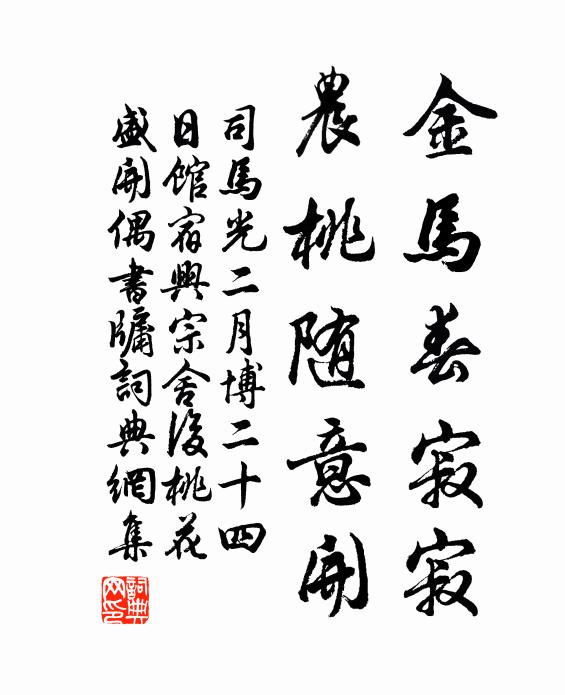 金馬春寂寂
農桃随意開
司馬光二月博二十四
日館宿興宗舍後桃花
盛開偶書牖詞典網集
詞典
网印